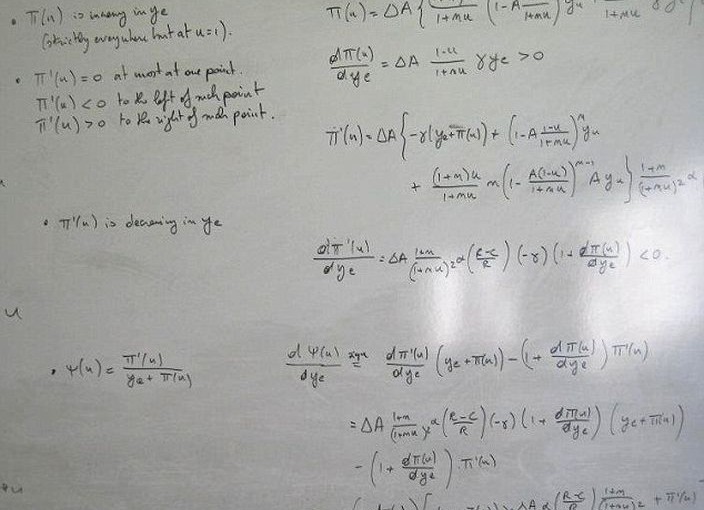 • Π(u) is increasing in ye
(strictly everywhere but at u=1).
• Π'(u) = 0 at most at one point.
Π'(u) < 0 to the left of such point
Π'(u) > 0 to the right of such point.
• Π'(u) is decreasing in ye
u
• Ψ(u) = Π'(u) / (ye + Π(u))
Π(u) = ΔA {
dΠ(u)/dye = ΔA (1-u)/(1+nu) γ ye > 0
Π'(u) = ΔA { -γ(ye+Π(u)) + (1-A (1-u)/(1+nu))^n yu
+ (1+n)u/(1+nu) n (1 - A(1-u)/(1+nu))^(n-1) A yu } (1+n)/(1+nu)^2 α
dΠ'(u)/dye = ΔA (1+n)/(1+nu)^2 α ((R-C)/R) (-γ) (1 + dΠ(u)/dye) < 0.
dΨ(u)/dye sgn= dΠ'(u)/dye (ye + Π(u)) - (1 + dΠ(u)/dye) Π'(u)
= ΔA (1+n)/(1+nu)^2 α ((R-C)/R) (-γ) (1 + dΠ(u)/dye) (ye + Π(u))
- (1 + dΠ(u)/dye) . Π'(u)